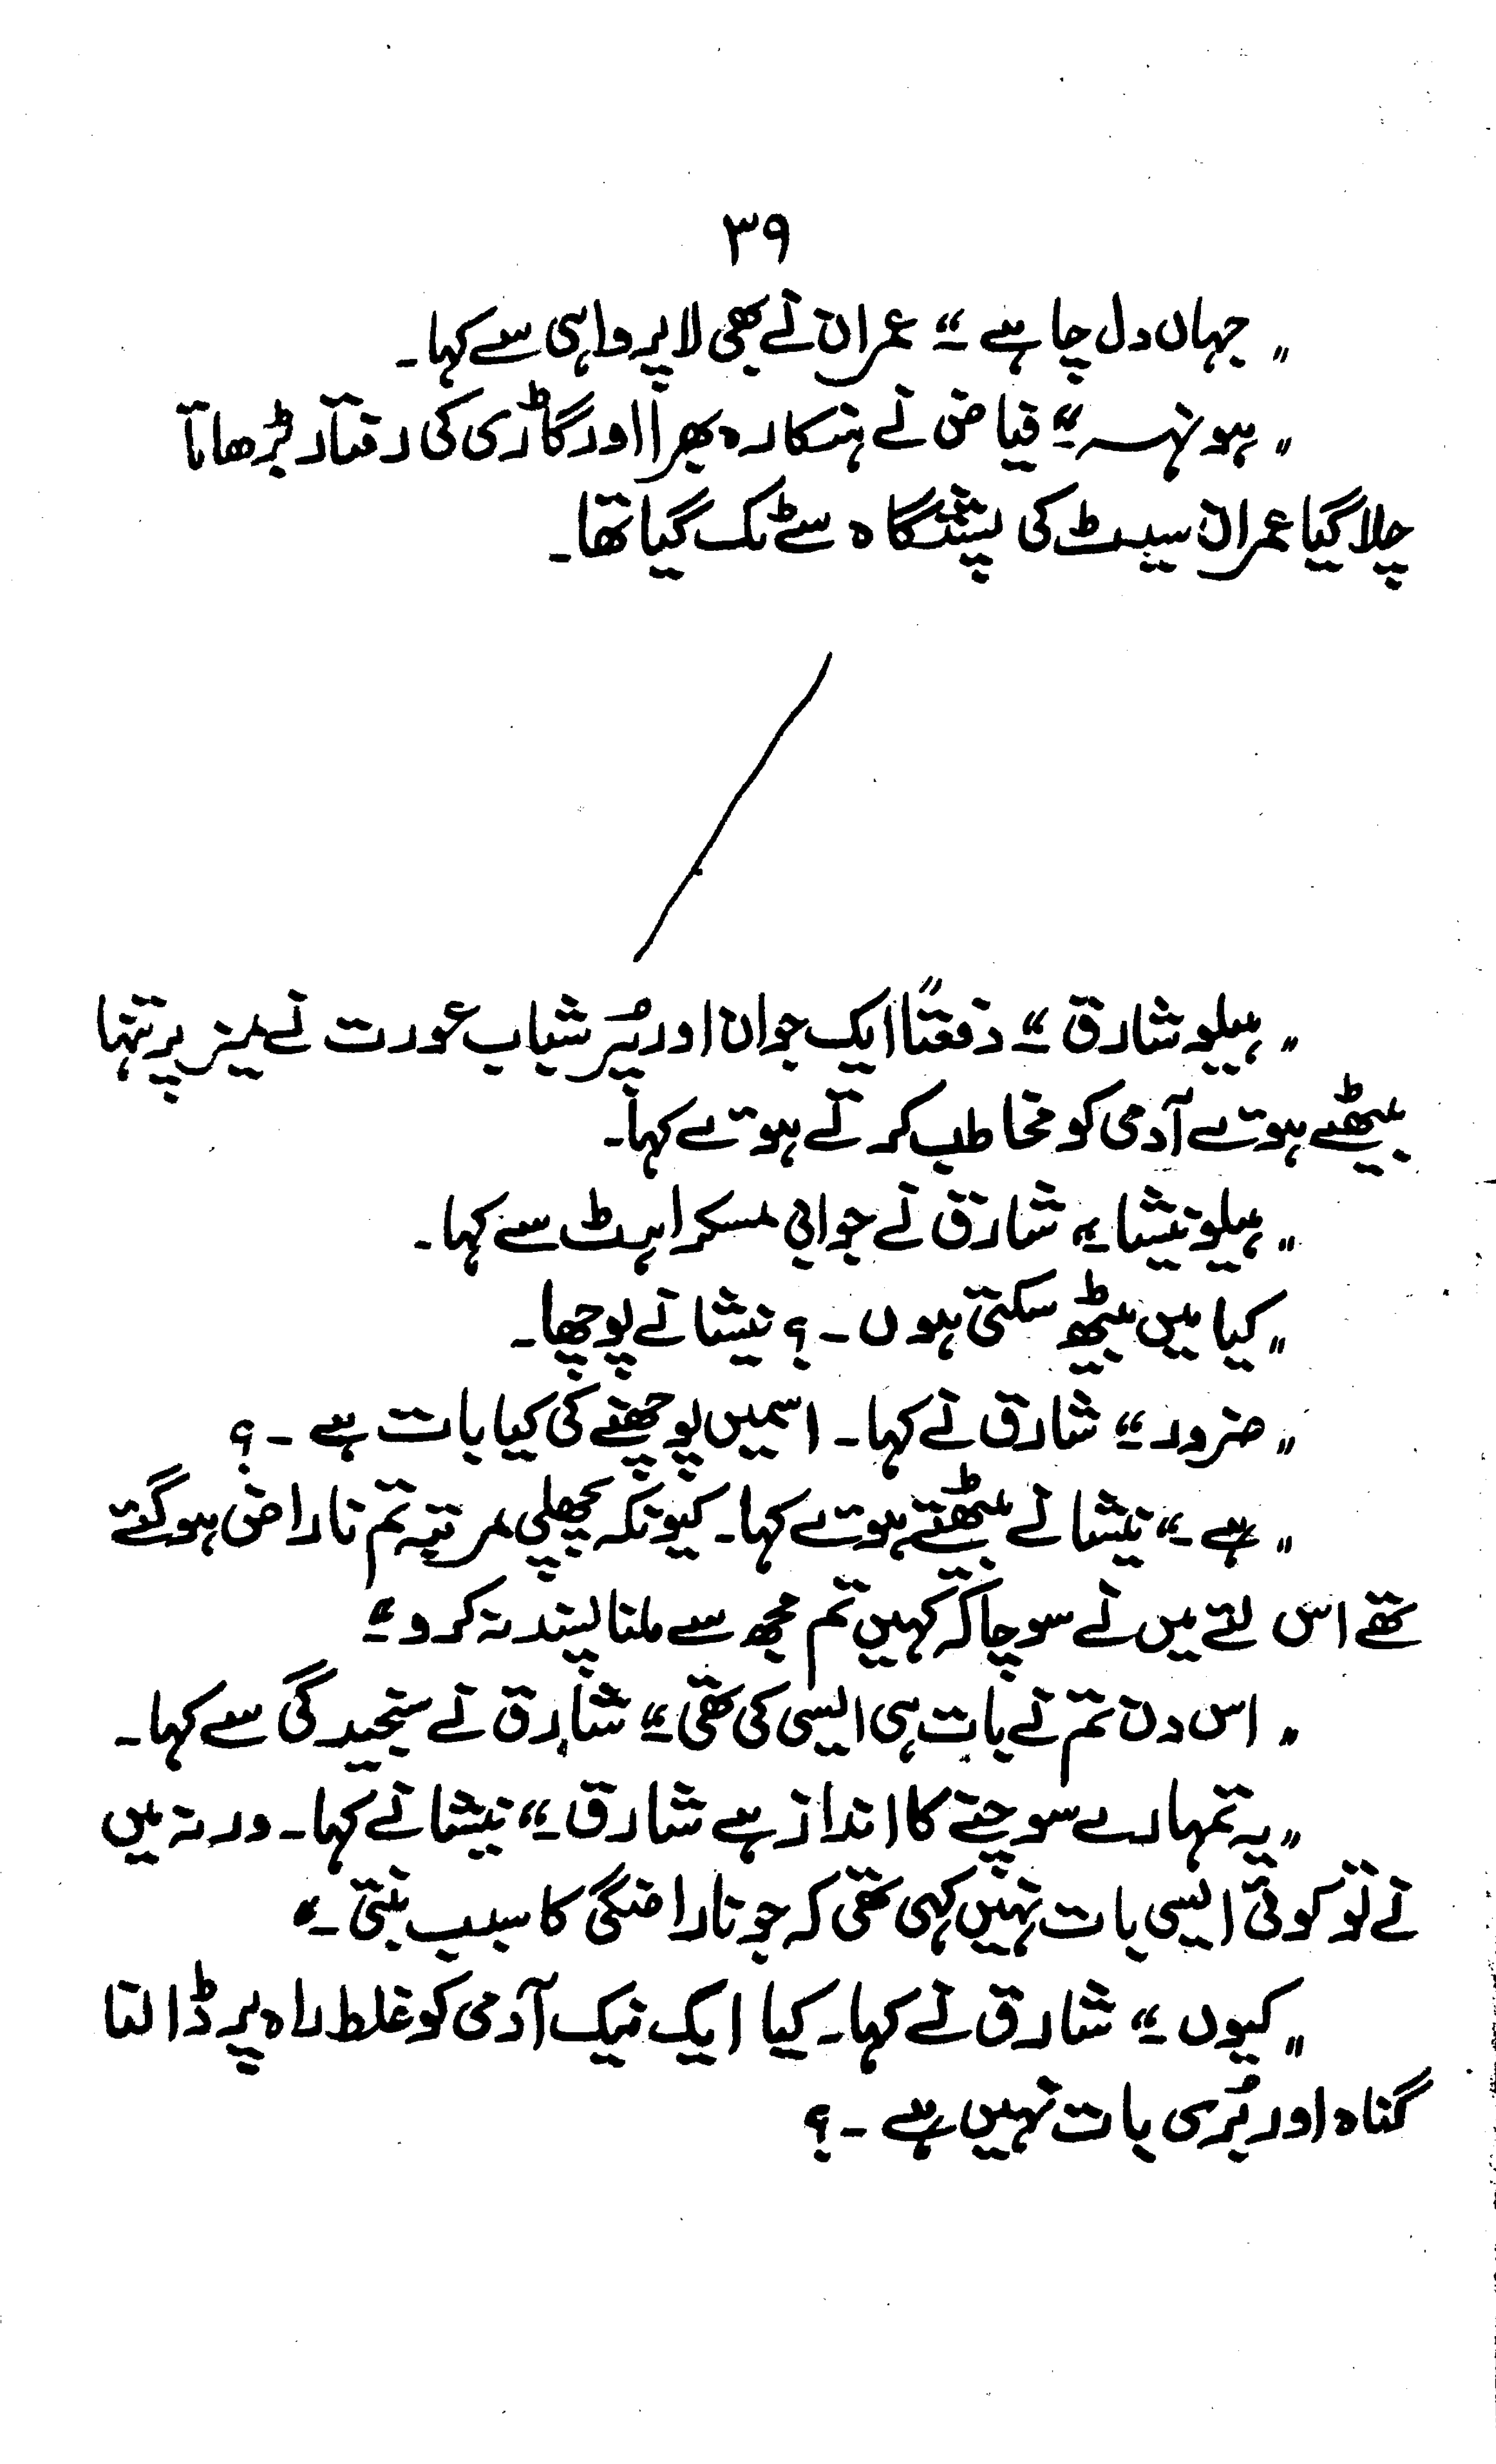 ۳۹
„ جہاں دل چاہے ۔“ عمران نے بھی لاپرواہی سے کہا۔
„ ہونہہ ۔“ فیاض نے ہنکارہ بھرا اور گاڑی کی رفتار بڑھاتا
چلا گیا عمران سیٹ کی پشتگاہ سے ٹک گیا تھا۔
„ ہیلو شارق ۔“ دفعتاً ایک جوان اور پُر شباب عورت نے میز پر تنہا
بیٹھے ہوئے آدمی کو مخاطب کرتے ہوئے کہا۔
„ ہیلو نیشا ۔“ شارق نے جوابی مسکراہٹ سے کہا۔
„ کیا میں بیٹھ سکتی ہوں ۔؟ نیشا نے پوچھا۔
„ ضرور ۔“ شارق نے کہا۔ اسمیں پوچھنے کی کیا بات ہے ۔؟
„ ہے ۔“ نیشا نے بیٹھتے ہوئے کہا۔ کیونکہ پچھلی مرتبہ تم ناراض ہو گئے
تھے اس لئے میں نے سوچا کہ کہیں تم مجھ سے ملنا پسند نہ کرو ۔“
„ اس دن تم نے بات ہی ایسی کی تھی ۔“ شارق نے سنجیدگی سے کہا۔
„ یہ تمہارے سوچنے کا انداز ہے شارق ۔“ نیشا نے کہا۔ ورنہ میں
نے تو کوئی ایسی بات نہیں کہی تھی کہ جو ناراضگی کا سبب بنتی ۔“
„ کیوں ۔“ شارق نے کہا۔ کیا ایک نیک آدمی کو غلط راہ پر ڈالنا
گناہ اور بُری بات نہیں ہے ۔؟